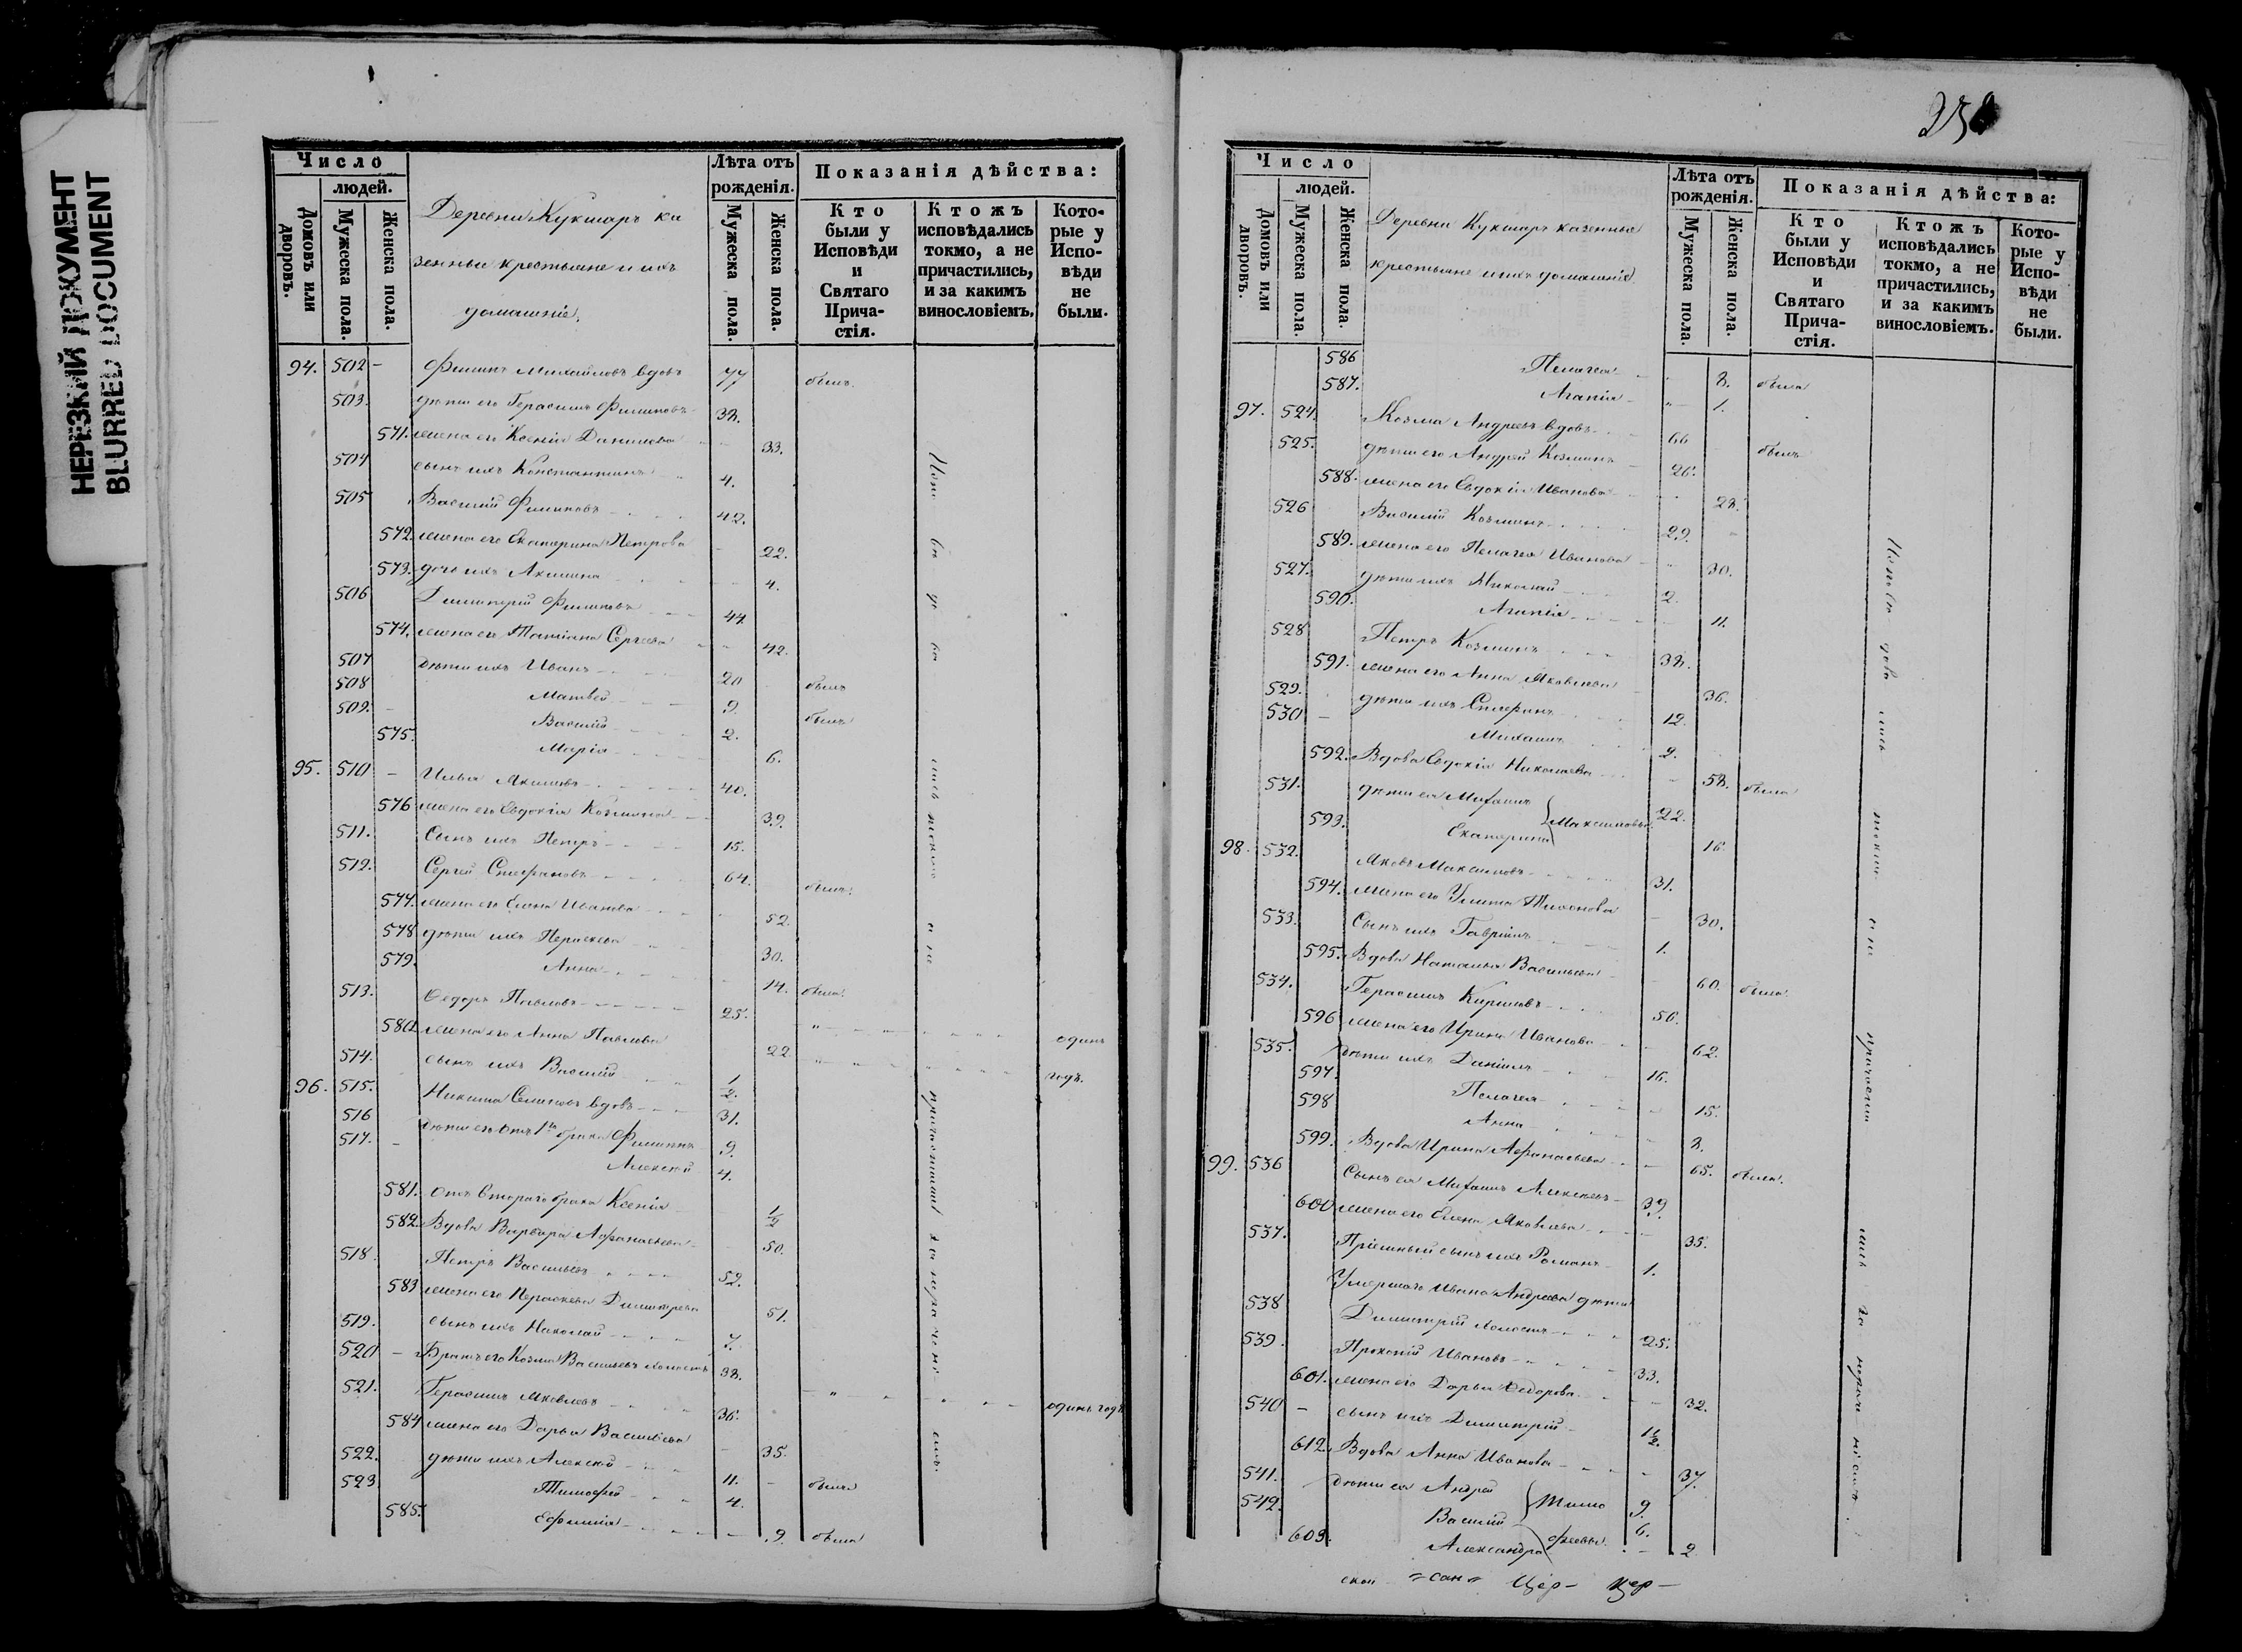 НЕРЕЗКИЙ ДОКУМЕНТ
BLURRED DOCUMENT
Число
людей.
Домовъ или дворовъ.
Мужеска пола.
Женска пола.
Деревни Кукшаръ ка
зенные крестьяне и ихъ
домашніе.
Лѣта отъ рожденія.
Мужеска пола.
Женска пола.
Показанія дѣйства:
Кто были у Исповѣди и Святаго Причастія.
Ктожъ исповѣдались токмо, а не причастились, и за какимъ винословіемъ.
Которые у Исповѣди не были.
94. 502 - Филипъ Михайловъ вдовъ 77 былъ.
503. дѣти его Герасимъ Филиповъ 38.
571. жена его Ксенія Данилова 33.
504 сынъ ихъ Константинъ 4.
505 Василій Филиповъ 42.
572 жена его Екатерина Петрова 22.
573. дочь ихъ Акилина 4.
506 Димитрій Филиповъ 44
574. жена его Татіана Сергеева 42.
507 дѣти ихъ Иванъ 20 былъ
508 Матвей 9. былъ
509. Василій 2.
575. Марія 6.
95. 510 - Илья Акимовъ 40.
576 жена его Евдокія Козмина 39.
511. Сынъ ихъ Петръ 15.
512. Сергей Стефановъ 64. былъ.
577. жена его Елена Иванова 52.
578 дѣти ихъ Параскева 30.
579. Анна 14. была.
513. Ѳедоръ Павловъ 25. одинъ
580. жена его Анна Павлова 22
514. сынъ ихъ Василій 1/2. годъ.
96. 515. Никита Семеновъ вдовъ 31.
516 дѣти его отъ 1го брака Филиппъ 9.
517. - Алексей 4.
581. отъ втораго брака Ксенія 1/2
582. Вдова Варвара Афанасьева 50.
518. Петръ Васильевъ 52.
583 жена его Параскева Димитрева 51.
519. сынъ ихъ Николай 7.
520 - Братъ его Козма Васильевъ холостъ 38.
521. Герасимъ Яковлевъ 36. одинъ годъ
584 жена его Дарья Васильева 35.
522. дѣти ихъ Алексей 11. были
523. Тимофей 4.
585. Ефимія 9. была
Исповѣдовались токмо а не причастились
Число
людей.
Домовъ или дворовъ.
Мужеска пола.
Женска пола.
Деревни Кукшаръ казенные
крестьяне и ихъ домашніе
Лѣта отъ рожденія.
Мужеска пола.
Женска пола.
Показанія дѣйства:
Кто были у Исповѣди и Святаго Причастія.
Ктожъ исповѣдались токмо, а не причастились, и за какимъ винословіемъ.
Которые у Исповѣди не были.
586 Пелагея 8. была
587. Агапія 1.
97. 524. Козма Андреевъ вдовъ 66 былъ
525. дѣти его Андрей Козминъ 26.
588. жена его Евдокія Иванова 28.
526 Василій Козминъ 29.
589. жена его Пелагея Иванова 30.
527. дѣти ихъ Николай 2.
590. Агапія 11.
528 Петръ Козминъ 38.
591. жена его Анна Яковлева 36.
529. дѣти ихъ Стефанъ 12.
530 - Михаилъ 2.
592. Вдова Евдокія Николаева 58. была
531. дѣти ея Михаилъ Максимовы 22.
593. Екатерина 16.
98. 532. Яковъ Максимовъ 31.
594. жена его Улита Тихонова 30.
533. Сынъ ихъ Гавріилъ 1.
595. Вдова Наталья Васильева 60. была.
534. Герасимъ Кириловъ 50.
596 жена его Ирина Иванова 62.
535. дѣти ихъ Даніилъ 16.
597. Пелагея 15.
598 Анна 8.
599. Вдова Ирина Афанасьева 65. была.
99. 536 Сынъ ея Михаилъ Алексеевъ 39.
600 жена его Елена Яковлева 35.
537. Пріемный сынъ ихъ Романъ 1.
Умершаго Ивана Андреева дѣти
538 Димитрій холостъ 25.
539. Прокопій Ивановъ 33.
601. жена его Дарья Ѳедорова 32.
540 - сынъ ихъ Димитрій 1 1/2.
612. Вдова Анна Иванова 37.
541. дѣти ея Андрей 9.
542. Василій Тимофеевы 6.
603. Александра 2
Исповѣдовались токмо а не причастились